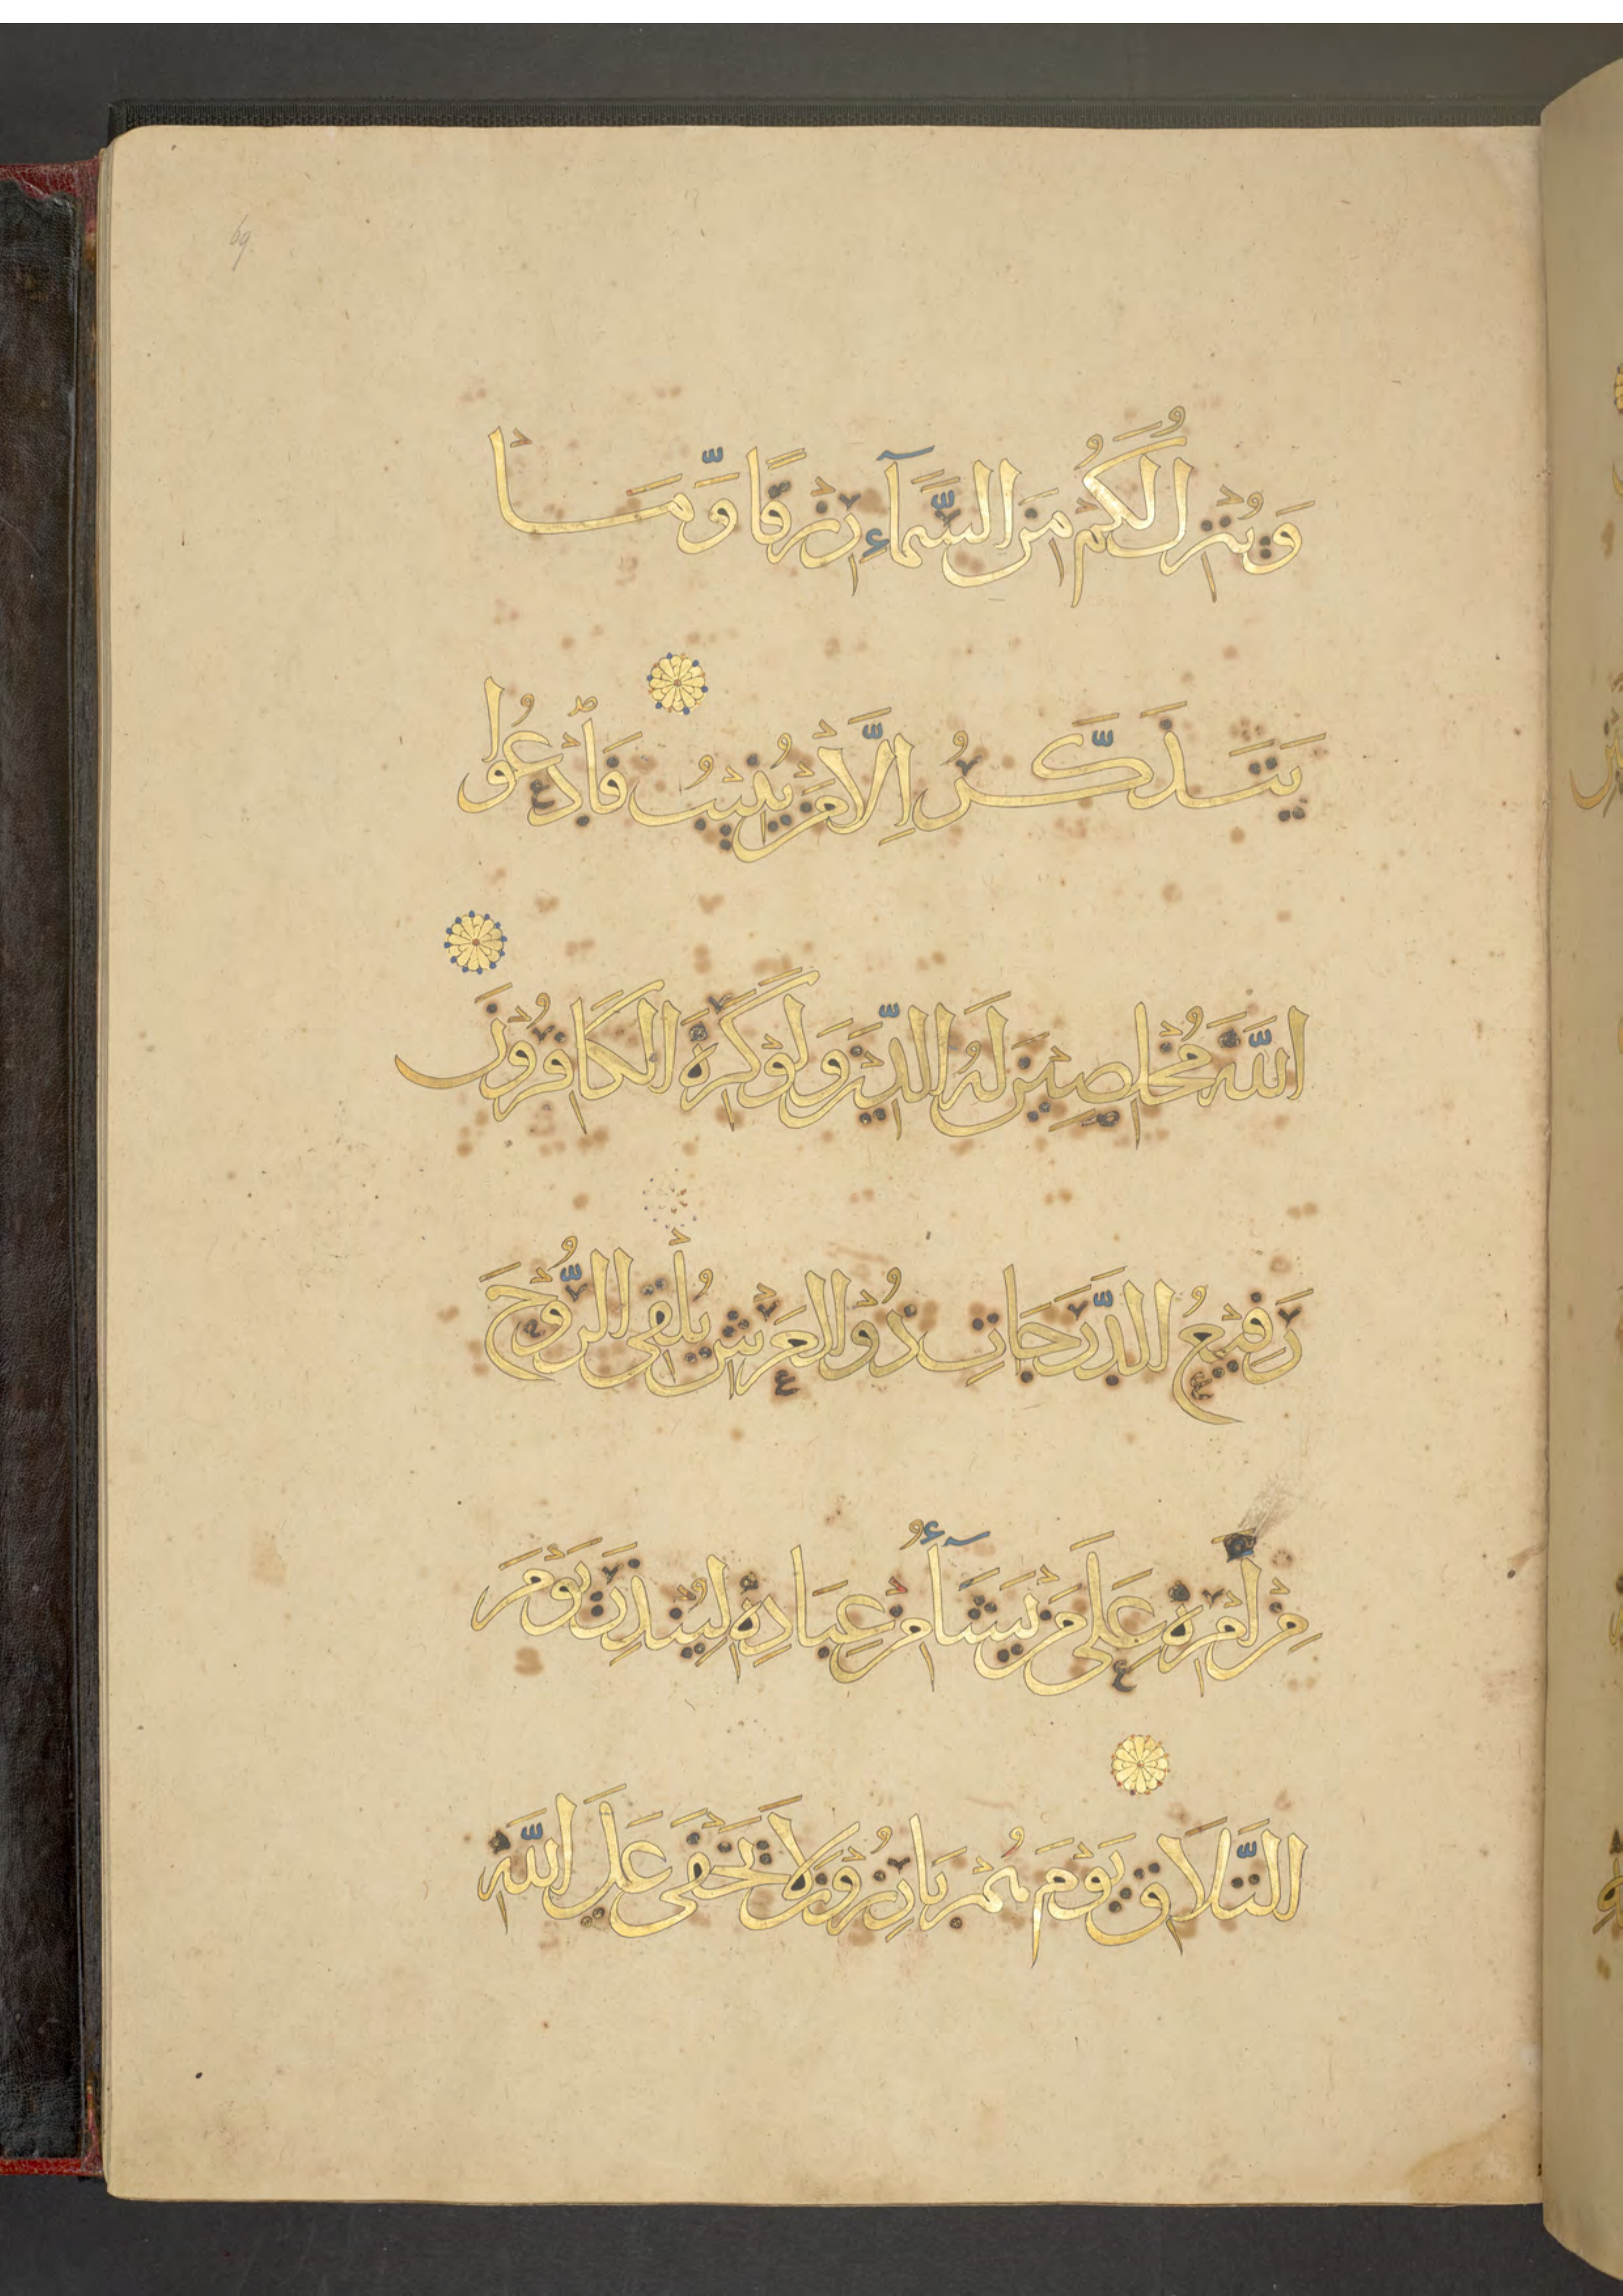 69
وَيُنْزِلُ لَكُمْ مِنَ السَّمَآءِ رِزْقًا وَّمَا
يَتَذَكَّرُ اِلَّا مَنْ يُنِيْبُ فَادْعُوا
اللّٰهَ مُخْلِصِيْنَ لَهُ الدِّيْنَ وَلَوْ كَرِهَ الْكَافِرُوْنَ
رَفِيْعُ الدَّرَجَاتِ ذُو الْعَرْشِ يُلْقِى الرُّوْحَ
مِنْ اَمْرِهٖ عَلَى مَنْ يَشَآءُ مِنْ عِبَادِهٖ لِيُنْذِرَ يَوْمَ
التَّلَاقِ يَوْمَ هُمْ بَارِزُوْنَ لَا يَخْفَى عَلَى اللّٰهِ